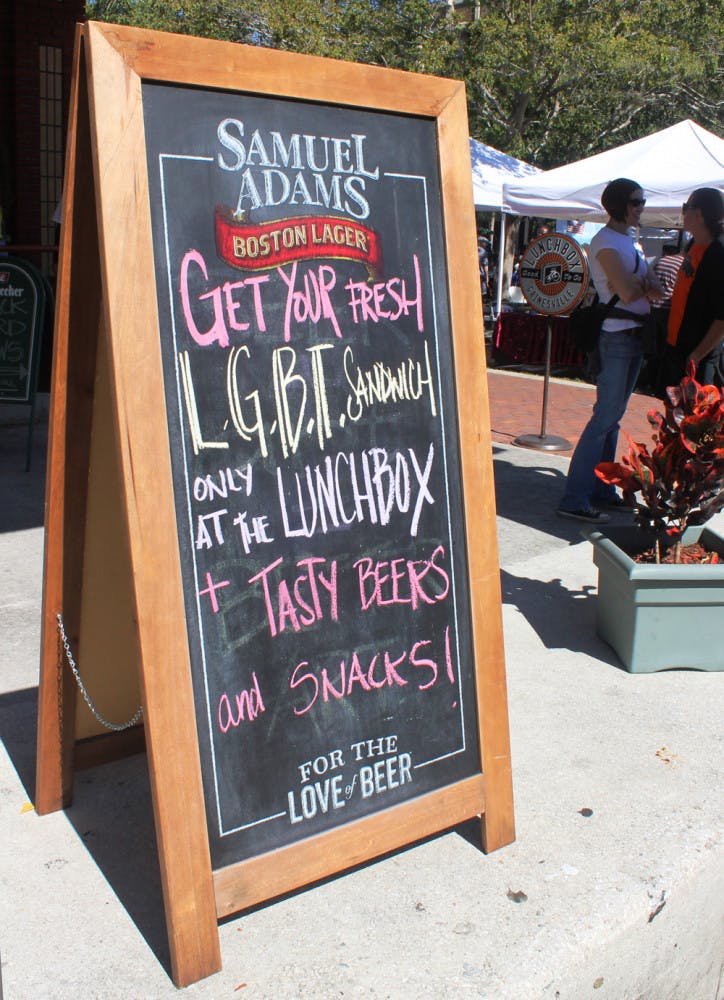 SAMUEL
ADAMS
BOSTON LAGER
GET YOUR FRESH
L.G.B.T. SANDWICH
ONLY
AT THE LUNCHBOX
+ TASTY BEERS
and SNACKS!
FOR THE
LOVE of BEER
LUNCHBOX
GAINESVILLE